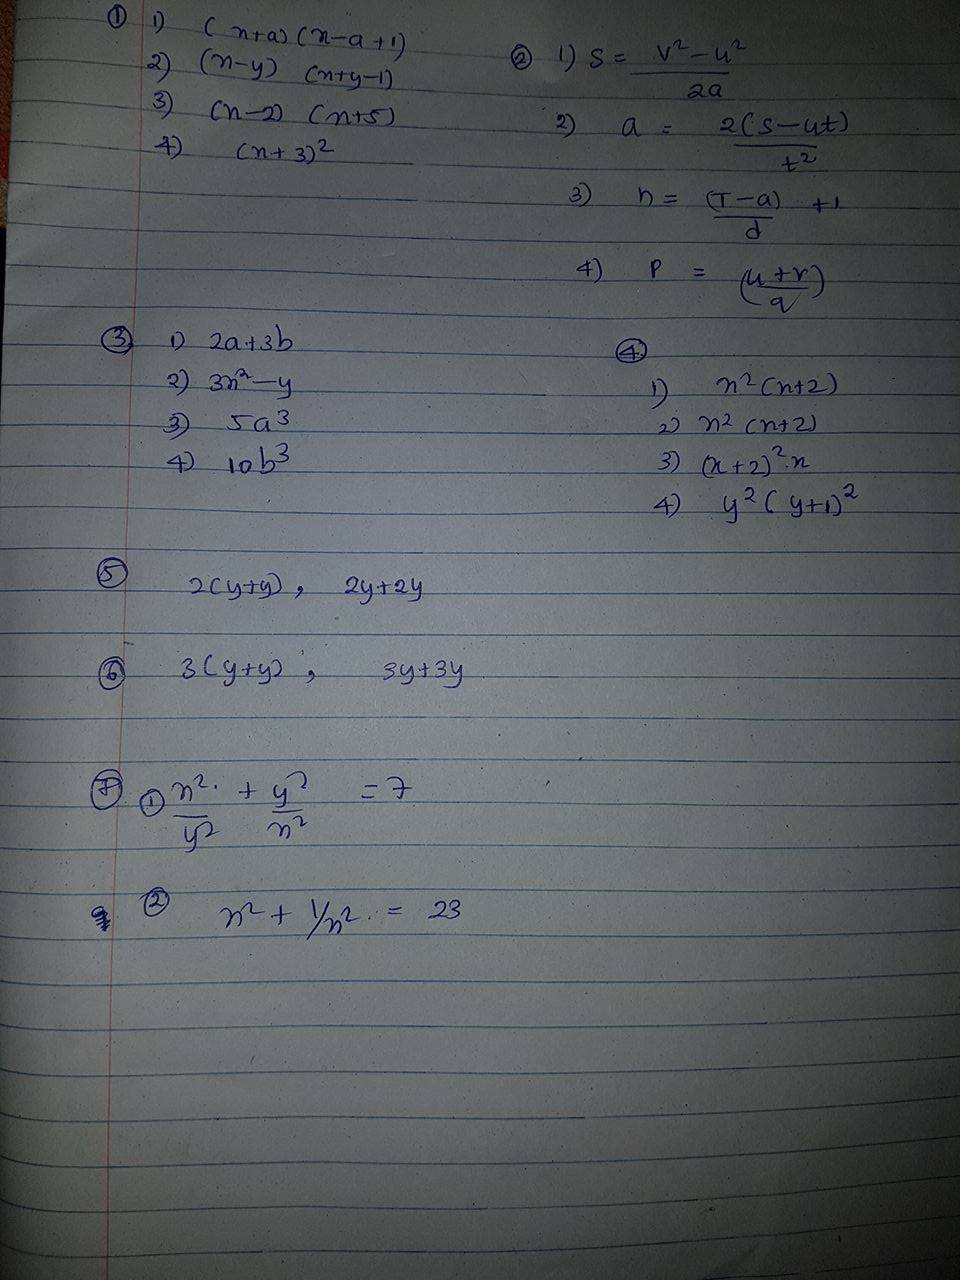 ① 1) (x+a) (x-a+1)
2) (x-y) (x+y-1)
3) (x-2) (x+5)
4) (x+3)²
② 1) S = v²-u² / 2a
2) a = 2(s-ut) / t²
3) n = (T-a) / d +1
4) P = (u+r / q)
③ 1) 2a+3b
2) 3x²-y
3) 5a³
4) 10b³
④
1) x²(x+2)
2) x² (x+2)
3) (x+2)².x
4) y²(y+1)²
⑤ 2(y+y), 2y+2y
⑥ 3(y+y), 3y+3y
⑦ ① x²/y² + y²/x² = 7
② x² + 1/x² = 23